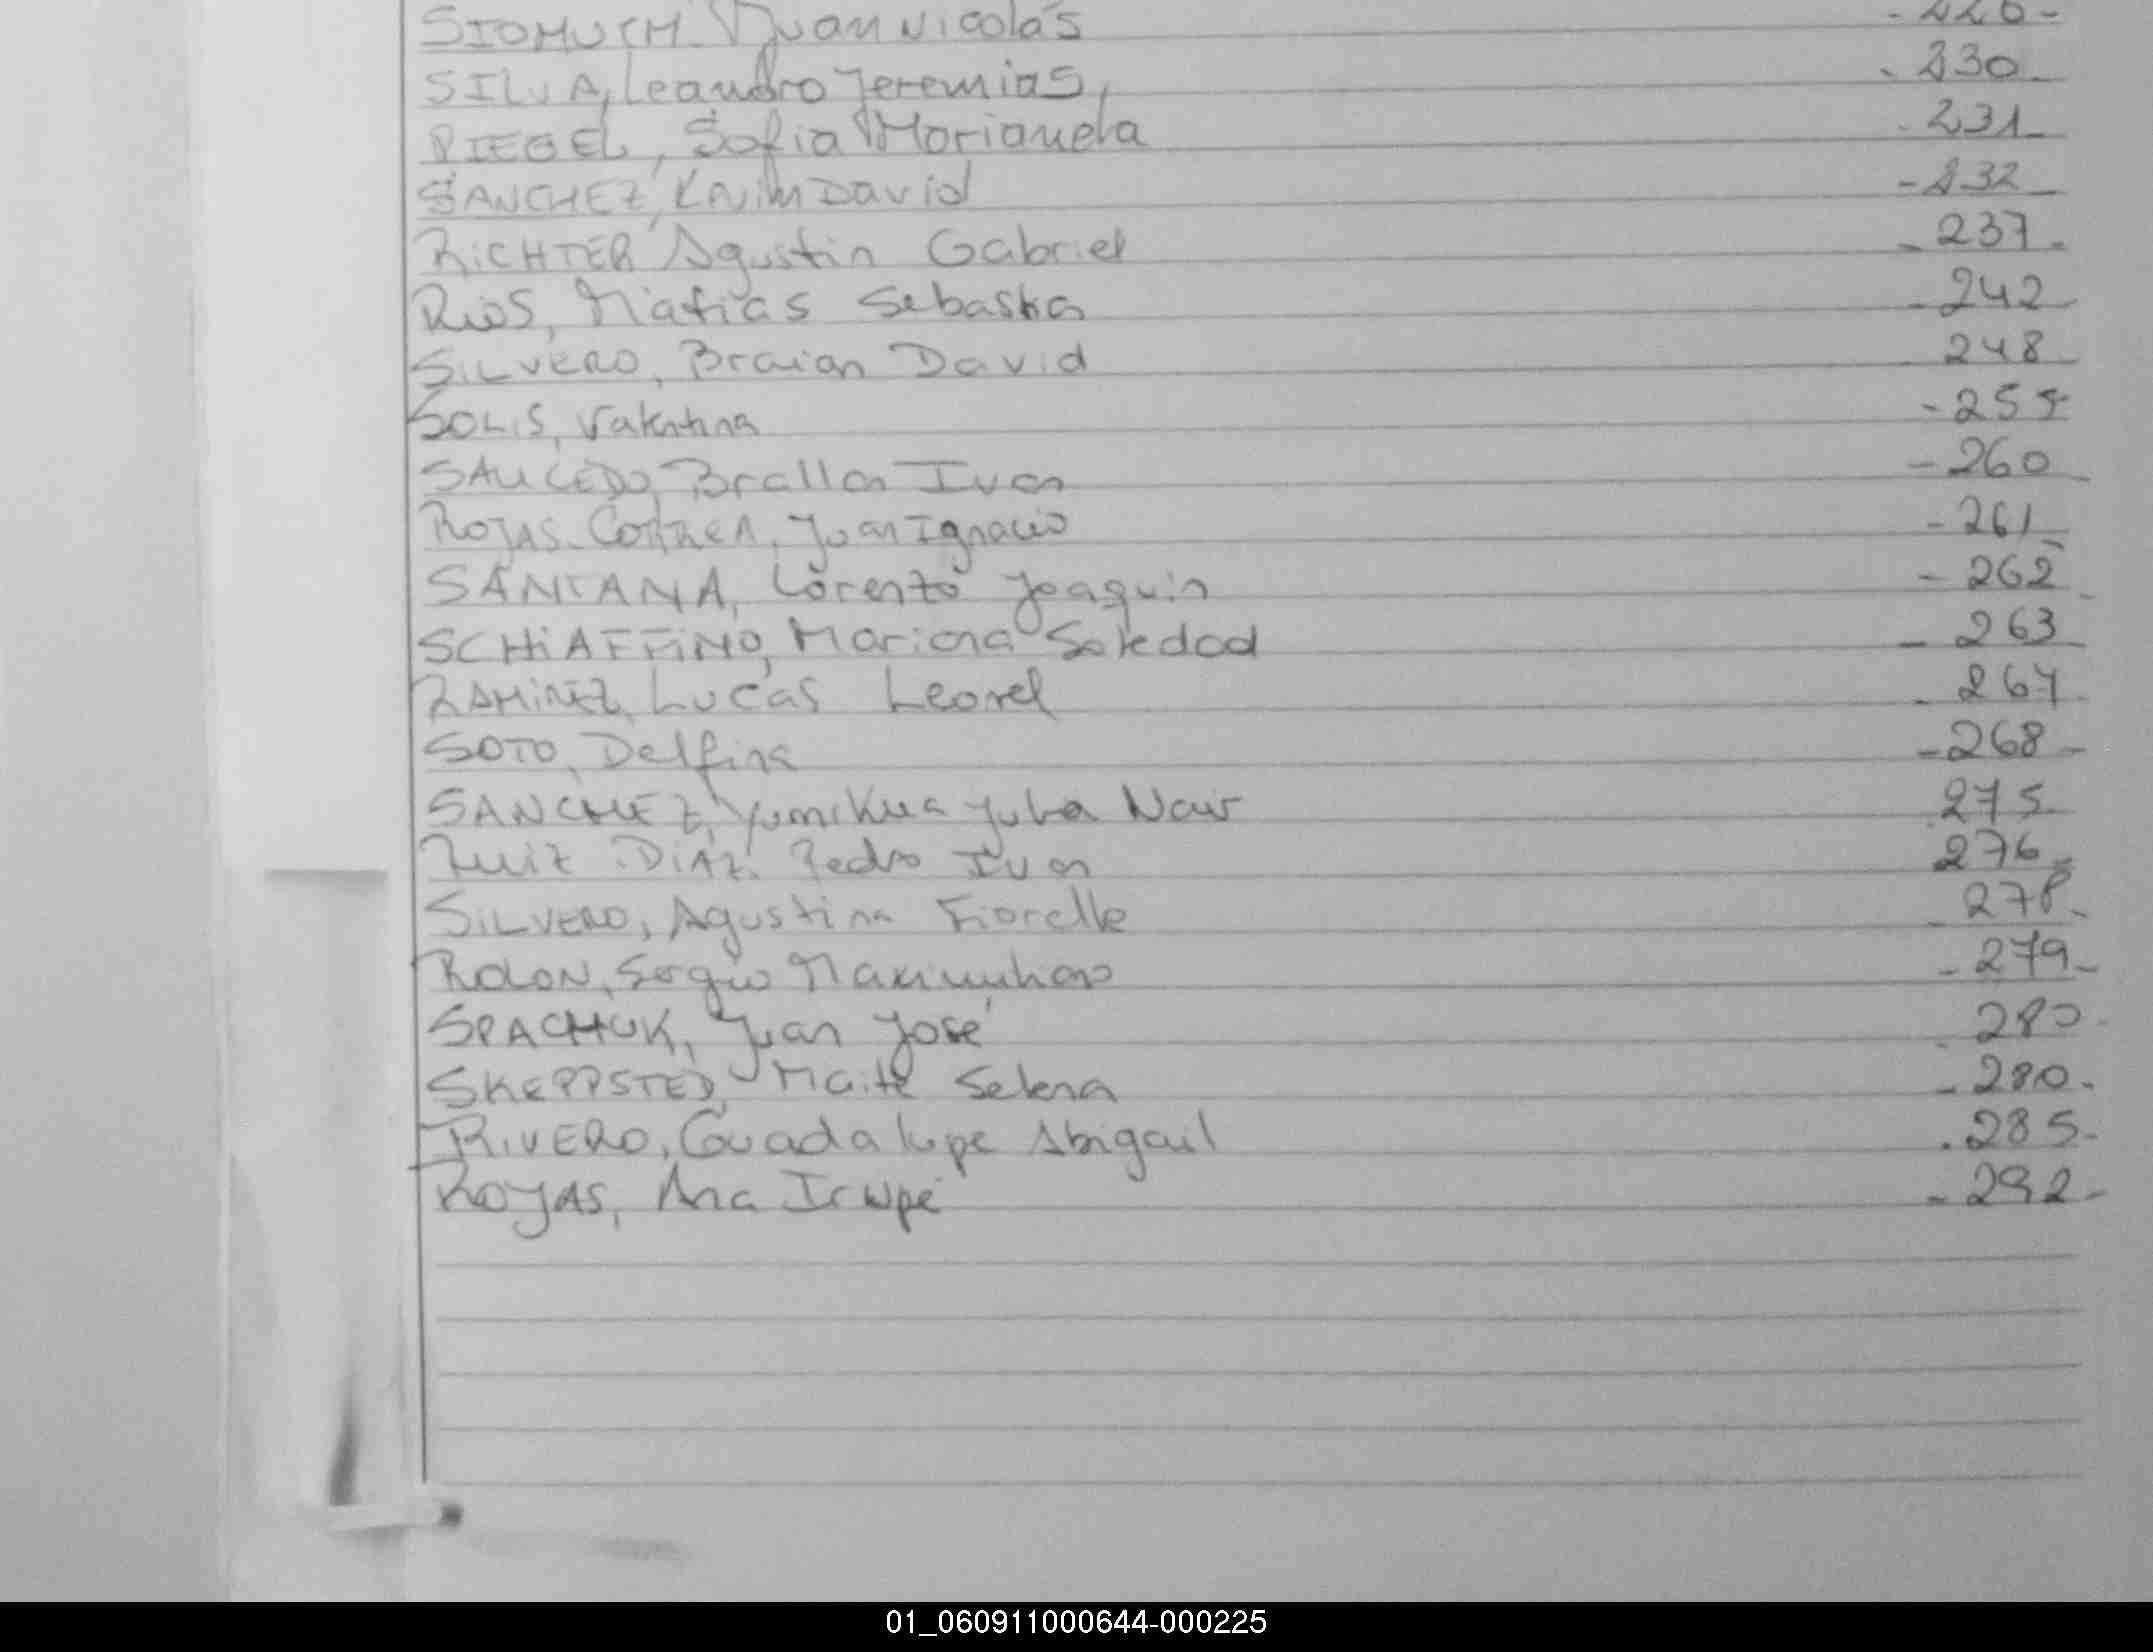 Juan Nicolás - 226 -
SILVA, Leandro Jeremias, - 230 -
RIEGEL, Sofia Marianela - 231 -
SANCHEZ, David - 232 -
RiCHTER Agustin Gabriel - 237 -
RioS, Matias Sebastian - 242 -
SiLVERO, Braian David 248 -
SOLiS, Valentina - 255 -
SAUCEDO, Brallan Ivan - 260 -
ROJAS CORREA, Juan Ignacio - 261
SANTANA, Lorenzo Joaquin - 262 -
SCHiAFFiNO, Mariana Soledad - 263 -
RAMiREZ, Lucas Leonel - 267 -
SOTO, Delfina - 268 -
SANCHEZ, Nair 275
RUiZ DiAZ. Pedro Ivan 276 -
SiLVERO, Agustina Fiorella - 278 -
ROLON, Sergio Maximiliano - 279 -
SPACHUK, Juan José - 280 -
SKEPPSTED, Maite Selena - 280 -
RiVERO, Guadalupe Abigail - 285 -
ROJAS, Ana Irupé - 292 -
01_060911000644-000225